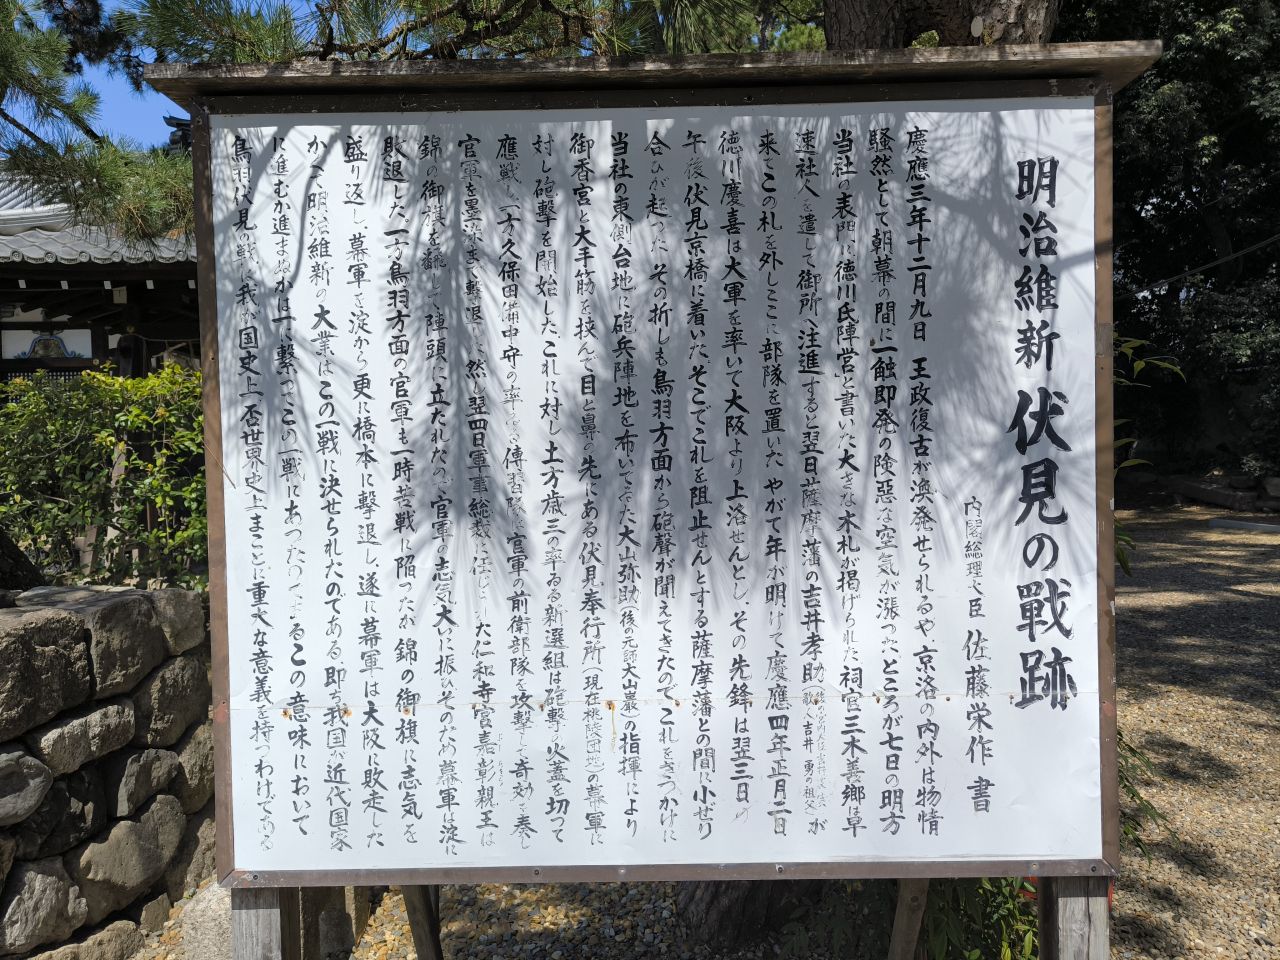 明治維新 伏見の戰跡
内閣総理大臣 佐藤栄作 書
慶應三年十二月九日 王政復古が渙発せられるや、京洛の内外は物情
騒然として朝幕の間に一触即発の険悪な空気が漲つた、ところが七日の明方
当社の表門に「徳川氏陣営」と書いた大きな木札が掲げられた 祠官三木善郷は早
速社人を遣して御所へ注進すると翌日薩摩藩の吉井孝助(歌人吉井勇の祖父)が
来てこの札を外しここに部隊を置いた やがて年が明けて慶應四年正月二日
徳川慶喜は大軍を率いて大阪より上洛せんとし、その先鋒は翌三日の
午後伏見京橋に着いた、そこでこれを阻止せんとする薩摩藩との間に小ぜり
合ひが起つた その折しも鳥羽方面から砲聲が聞えてきたのでこれをきつかけに
当社の東側台地に砲兵陣地を布いてゐた大山弥助(後の元帥大山巌)の指揮により
御香宮と大手筋を挾んで目と鼻の先にある伏見奉行所(現在桃陵団地)の幕軍に
対し砲撃を開始した、これに対し土方歳三の率ゐる新選組は砲撃の火蓋を切つて
應戦し 一方久保田備中守の率ゐる傳習隊は官軍の前衛部隊を攻撃して奇効を奏し
官軍を墨染まで撃退した 然し翌四日軍事総裁に任じられた仁和寺宮嘉彰親王は
錦の御旗を飜して陣頭に立たれたので官軍の志気大いに振ひそのため幕軍は淀に
敗退した 一方鳥羽方面の官軍も一時苦戦に陥つたが錦の御旗に志気を
盛り返し、幕軍を淀から更に橋本に撃退し、遂に幕軍は大阪に敗走した
かくて明治維新の大業はこの一戦に決せられたのである 即ち我国が近代国家
に進むか進まぬかは一に繋つてこの一戦にあつたのである この意味において
鳥羽伏見の戦は我が国史上、否世界史上まことに重大な意義を持つわけである